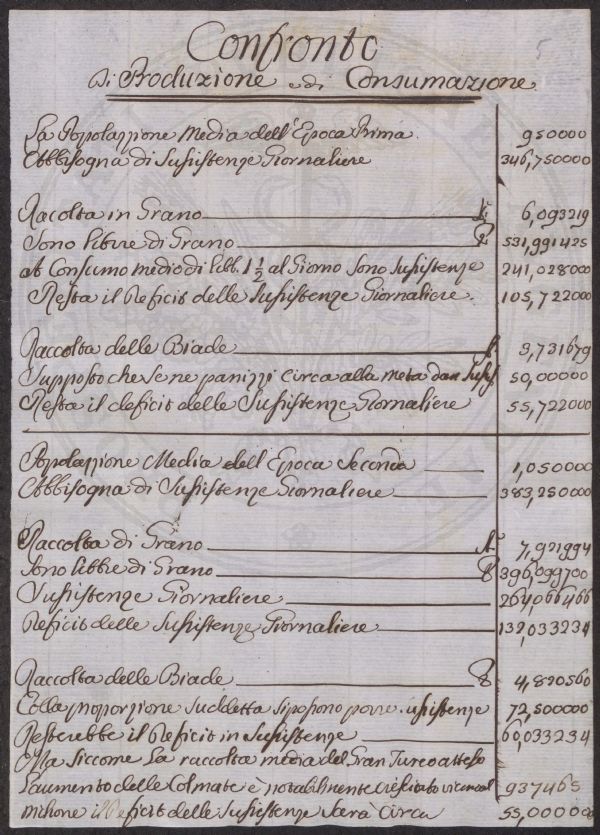 5
Confronto
di Produzione e di Consumazione
La Popolazione Media dell'Epoca Prima. 950000
Abbisogna di Sussistenze Giornaliere 346,750000
Racolta in Grano 6,093219
Sono libbre di Grano 531,991425
Al Consumo medio di libb. 1 1/2 al Giorno Sono Sussistenze 241,028000
Resta il Deficit delle Sussistenze Giornaliere 105,722000
Raccolta delle Biade 3,731679
Supposto che se ne panizzi circa alla metà dan Sussis 50,00000
Resta il deficit delle Sussistenze Giornaliere 55,722000
Popolazione Media dell Epoca Seconda 1,050000
Abbisogna di Sussistenze Giornaliere 383,250000
Raccolta di Grano 7,921994
Sono libbre di Grano 396,099700
Sussistenze Giornaliere 264,066466
Deficit delle Sussistenze Giornaliere 132,033234
Raccolta delle Biade 4,820560
Colla proporzione suddetta si possono 72,500000
Resterebbe il Deficit in Sussistenze 60,033234
Ma siccome La raccolta media del Gran Turco atteso
L'aumento delle Colmate è notabilmente 937465
milione il Deficit delle Sussistenze sarà circa 55,000000